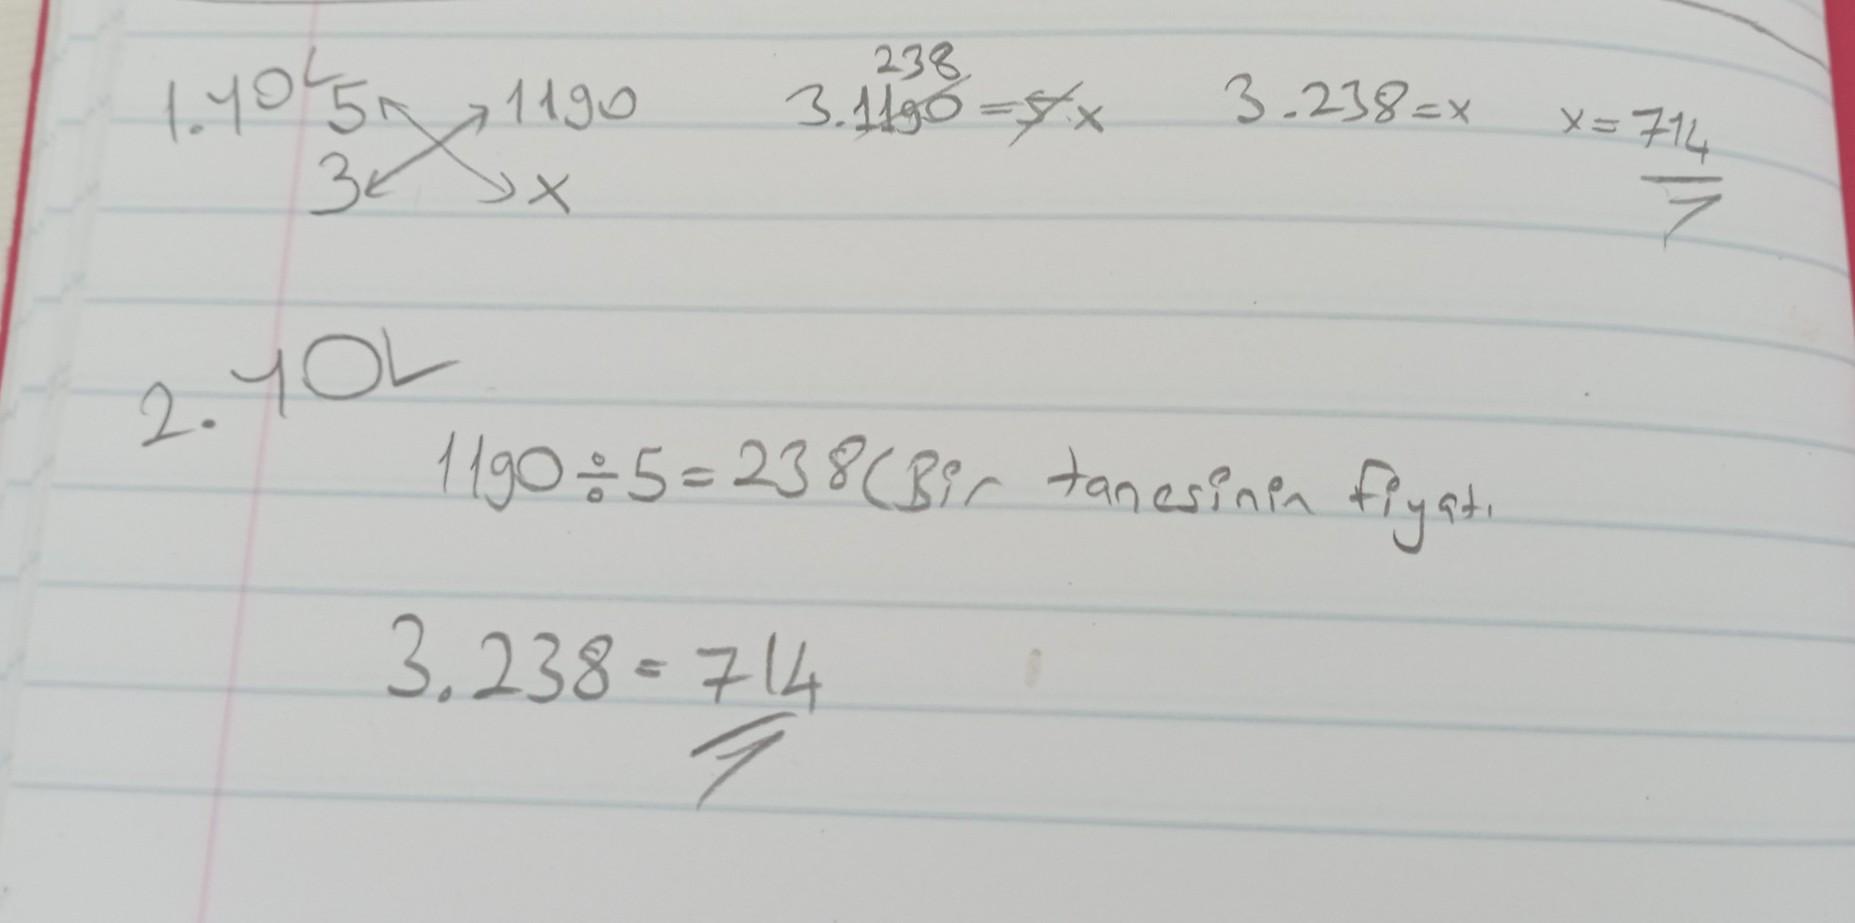 1.YOL 5 1190 3.1190=5x 238 3.238=x x=714
3 x
2.YOL
1190÷5=238(Bir tanesinin fiyatı
3.238=714